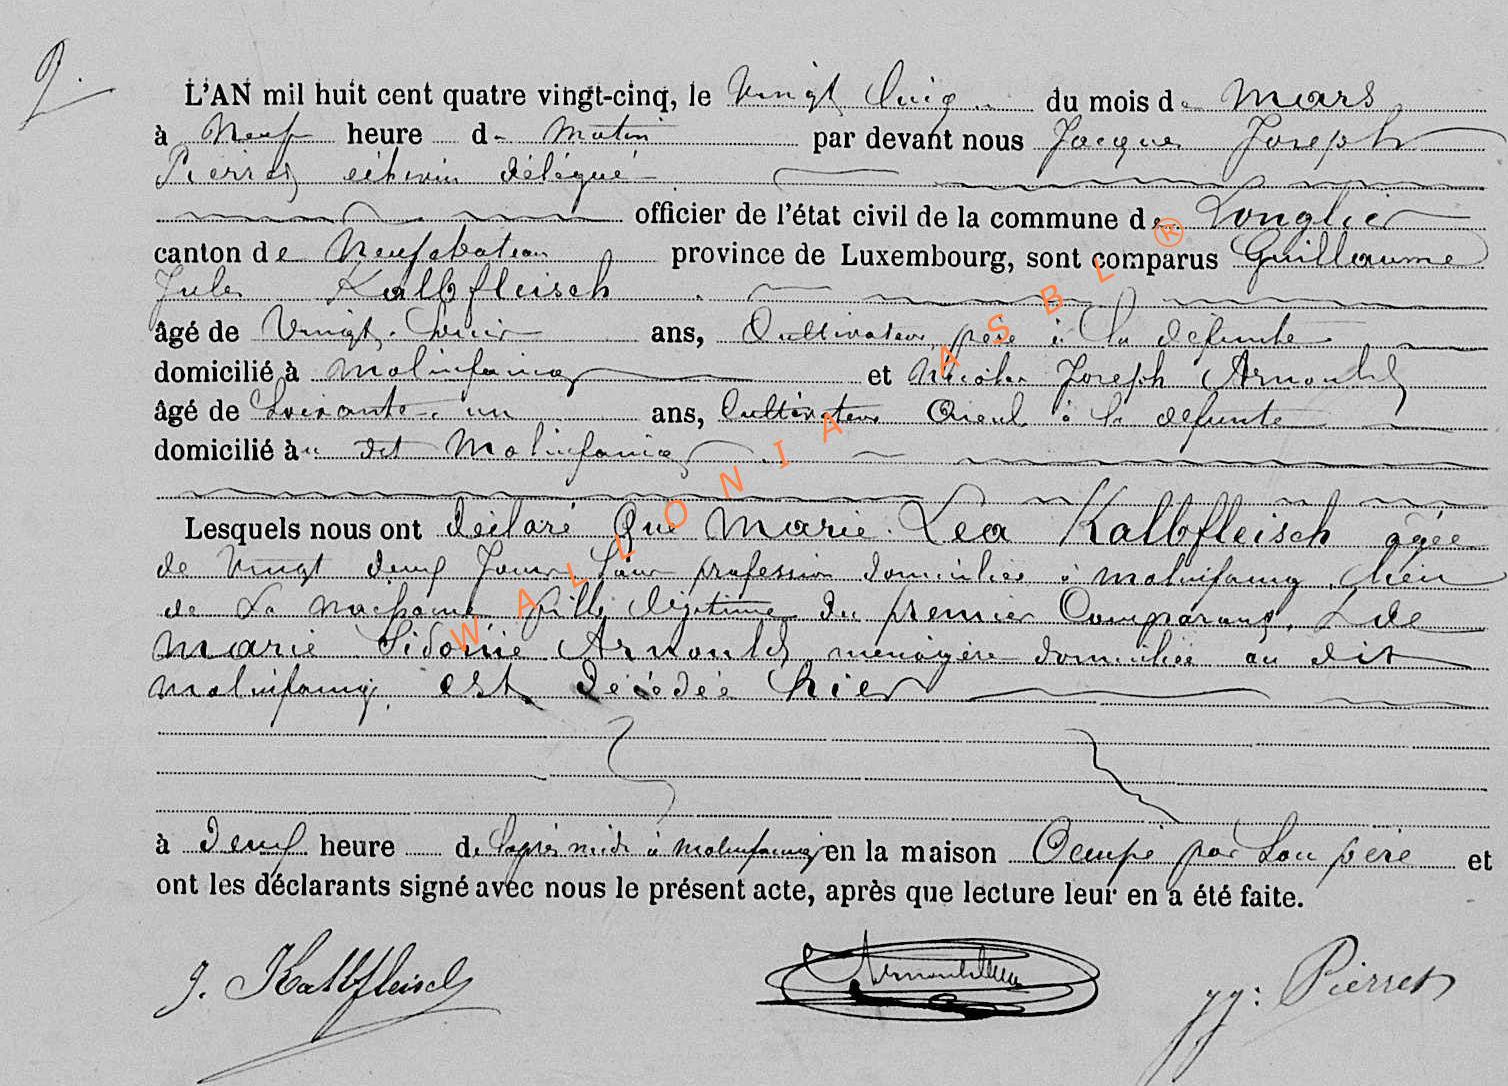 9.
L'AN mil huit cent quatre vingt-cinq, le vingt cinq du mois de Mars
à Neuf heure du matin par devant nous Jacques Joseph
Pierret échevin délégué
officier de l'état civil de la commune de Longlier
canton de Neufchateau province de Luxembourg, sont comparus Guillaume
Jules Kalbfleisch
âgé de Vingt ans, Cultivateur, père à la défunte
domicilié à Molinfaing et Nicolas Joseph Arnould
âgé de Soixante un ans, Cultivateur Aïeul à la défunte
domicilié au dit Molinfaing
Lesquels nous ont déclaré que Marie Léa Kalbfleisch âgée
de Vingt deux Jours sans profession domiciliée à molinfaing, lieu
de sa naissance, fille légitime du premier Comparant, & de
Marie Sidonie Arnould, ménagère domiciliée au dit
molinfaing, est décédée hier
à deux heure de l'après midi à molinfaing en la maison Occupé par son père et
ont les déclarants signé avec nous le présent acte, après que lecture leur en a été faite.
J. Kalbfleisch Arnould JJ: Pierret
WALLONIA ASBL ®